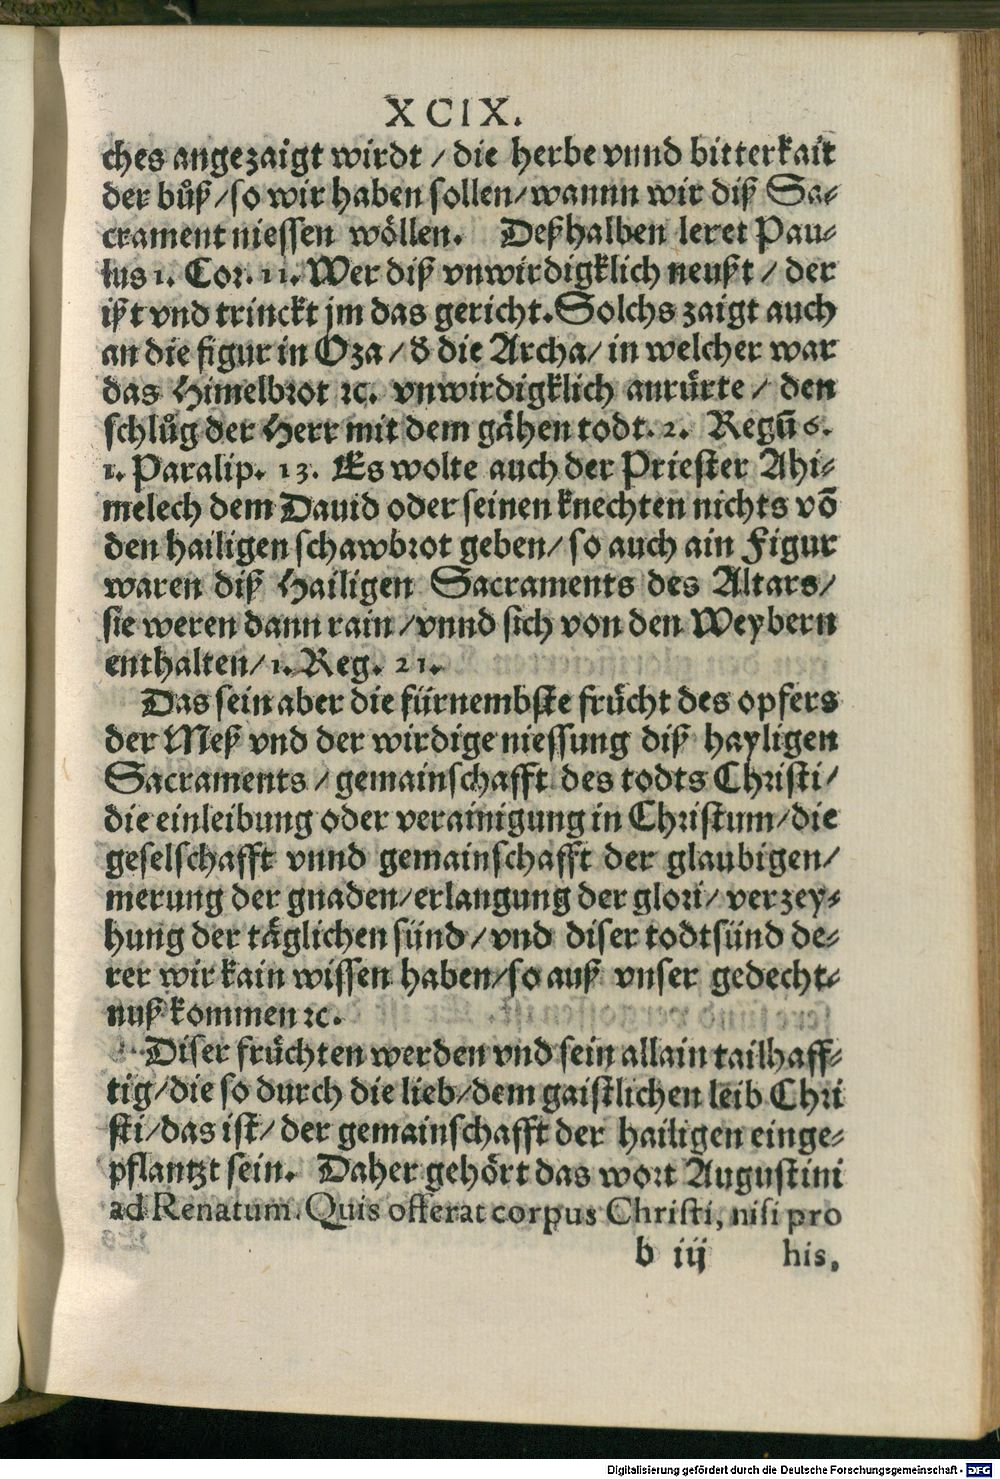 XCIX.
ches angezaigt wirdt / die herbe vnnd bitterkait
der bůß / so wir haben sollen / wannn wir diß Sa-
crament niessen wöllen. Deßhalben leret Pau-
lus 1. Cor. 11. Wer diß vnwirdigklich neußt / der
ißt vnd trinckt jm das gericht. Solchs zaigt auch
an die figur in Oza / d̕ die Archa / in welcher war
das Himelbrot ꝛc. vnwirdigklich anrürte / den
schlůg der Herr mit dem gähen todt. 2. Regū 6.
1. Paralip. 13. Es wolte auch der Priester Ahi-
melech dem Dauid oder seinen knechten nichts vō
den hailigen schawbrot geben / so auch ain Figur
waren diß Hailigen Sacraments des Altars /
sie weren dann rain / vnnd sich von den Weybern
enthalten / 1. Reg. 21.
Das sein aber die fürnembste frücht des opfers
der Meß vnd der wirdige niessung diß hayligen
Sacraments / gemainschafft des todts Christi /
die einleibung oder verainigung in Christum / die
geselschafft vnnd gemainschafft der glaubigen /
merung der gnaden / erlangung der glori / verzey-
hung der täglichen sünd / vnd diser todtsünd de-
rer wir kain wissen haben / so auß vnser gedecht-
nuß kommen ꝛc.
Diser früchten werden vnd sein allain tailhaff-
tig / die so durch die lieb / dem gaistlichen leib Chri
sti / das ist / der gemainschafft der hailigen einge-
pflantzt sein. Daher gehört das wort Augustini
ad Renatum. Quis offerat corpus Christi, nisi pro
b iij his,
Digitalisierung gefördert durch die Deutsche Forschungsgemeinschaft - DFG